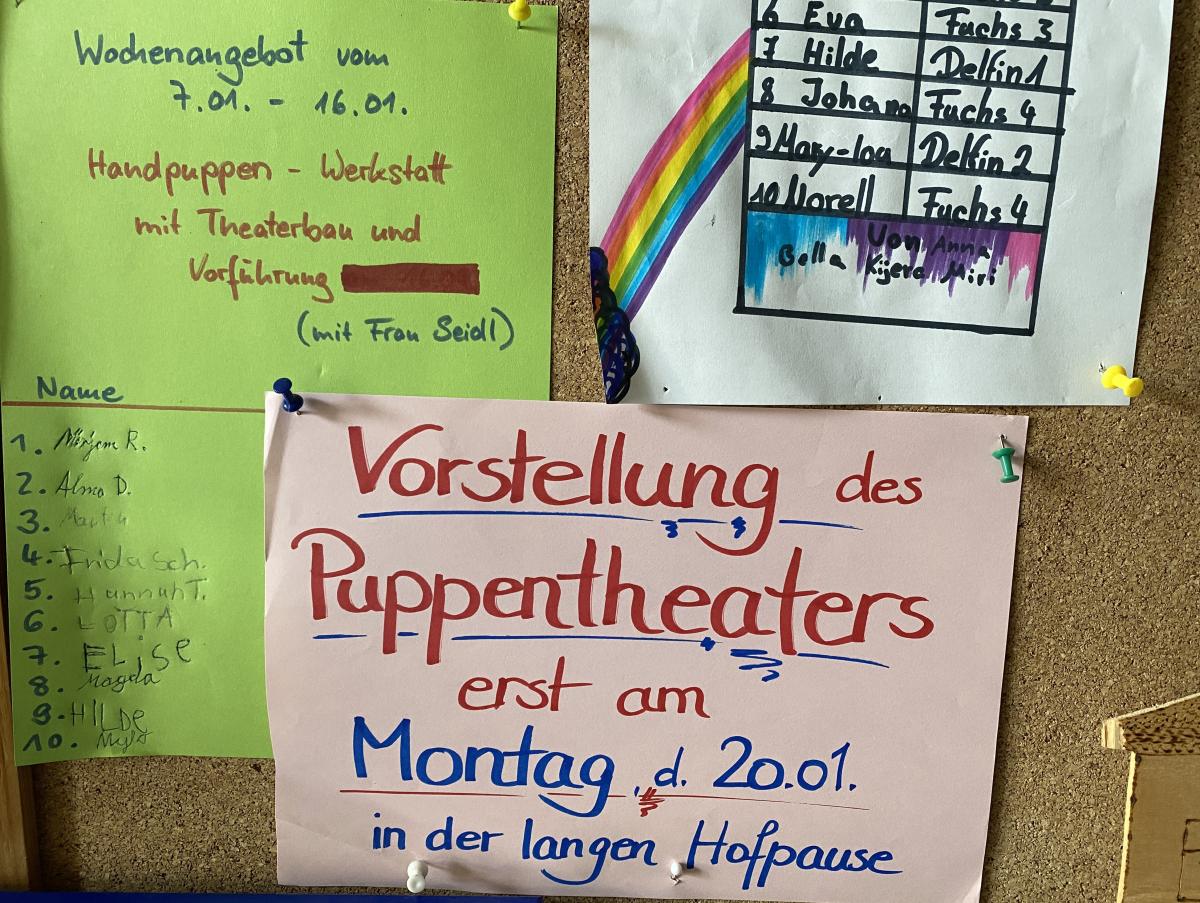 Wochenangebot vom
7.01. - 16.01.
Handpuppen - Werkstatt
mit Theaterbau und
Vorführung
(mit Frau Seidl)
Name
1. Mirjam R.
2. Alma D.
3.
4. Frida Sch.
5. Hannah T.
6. LOTTA
7. ELiSe
8. Magda
9. HILDe
10.
6 Eva Fuchs 3
7 Hilde Delfin 1
8 Johana Fuchs 4
9 Mary-loa Delfin 2
10 Norell Fuchs 4
Von Anna
Bella Kijera Miri
Vorstellung des
Puppentheaters
erst am
Montag, d. 20.01.
in der langen Hofpause